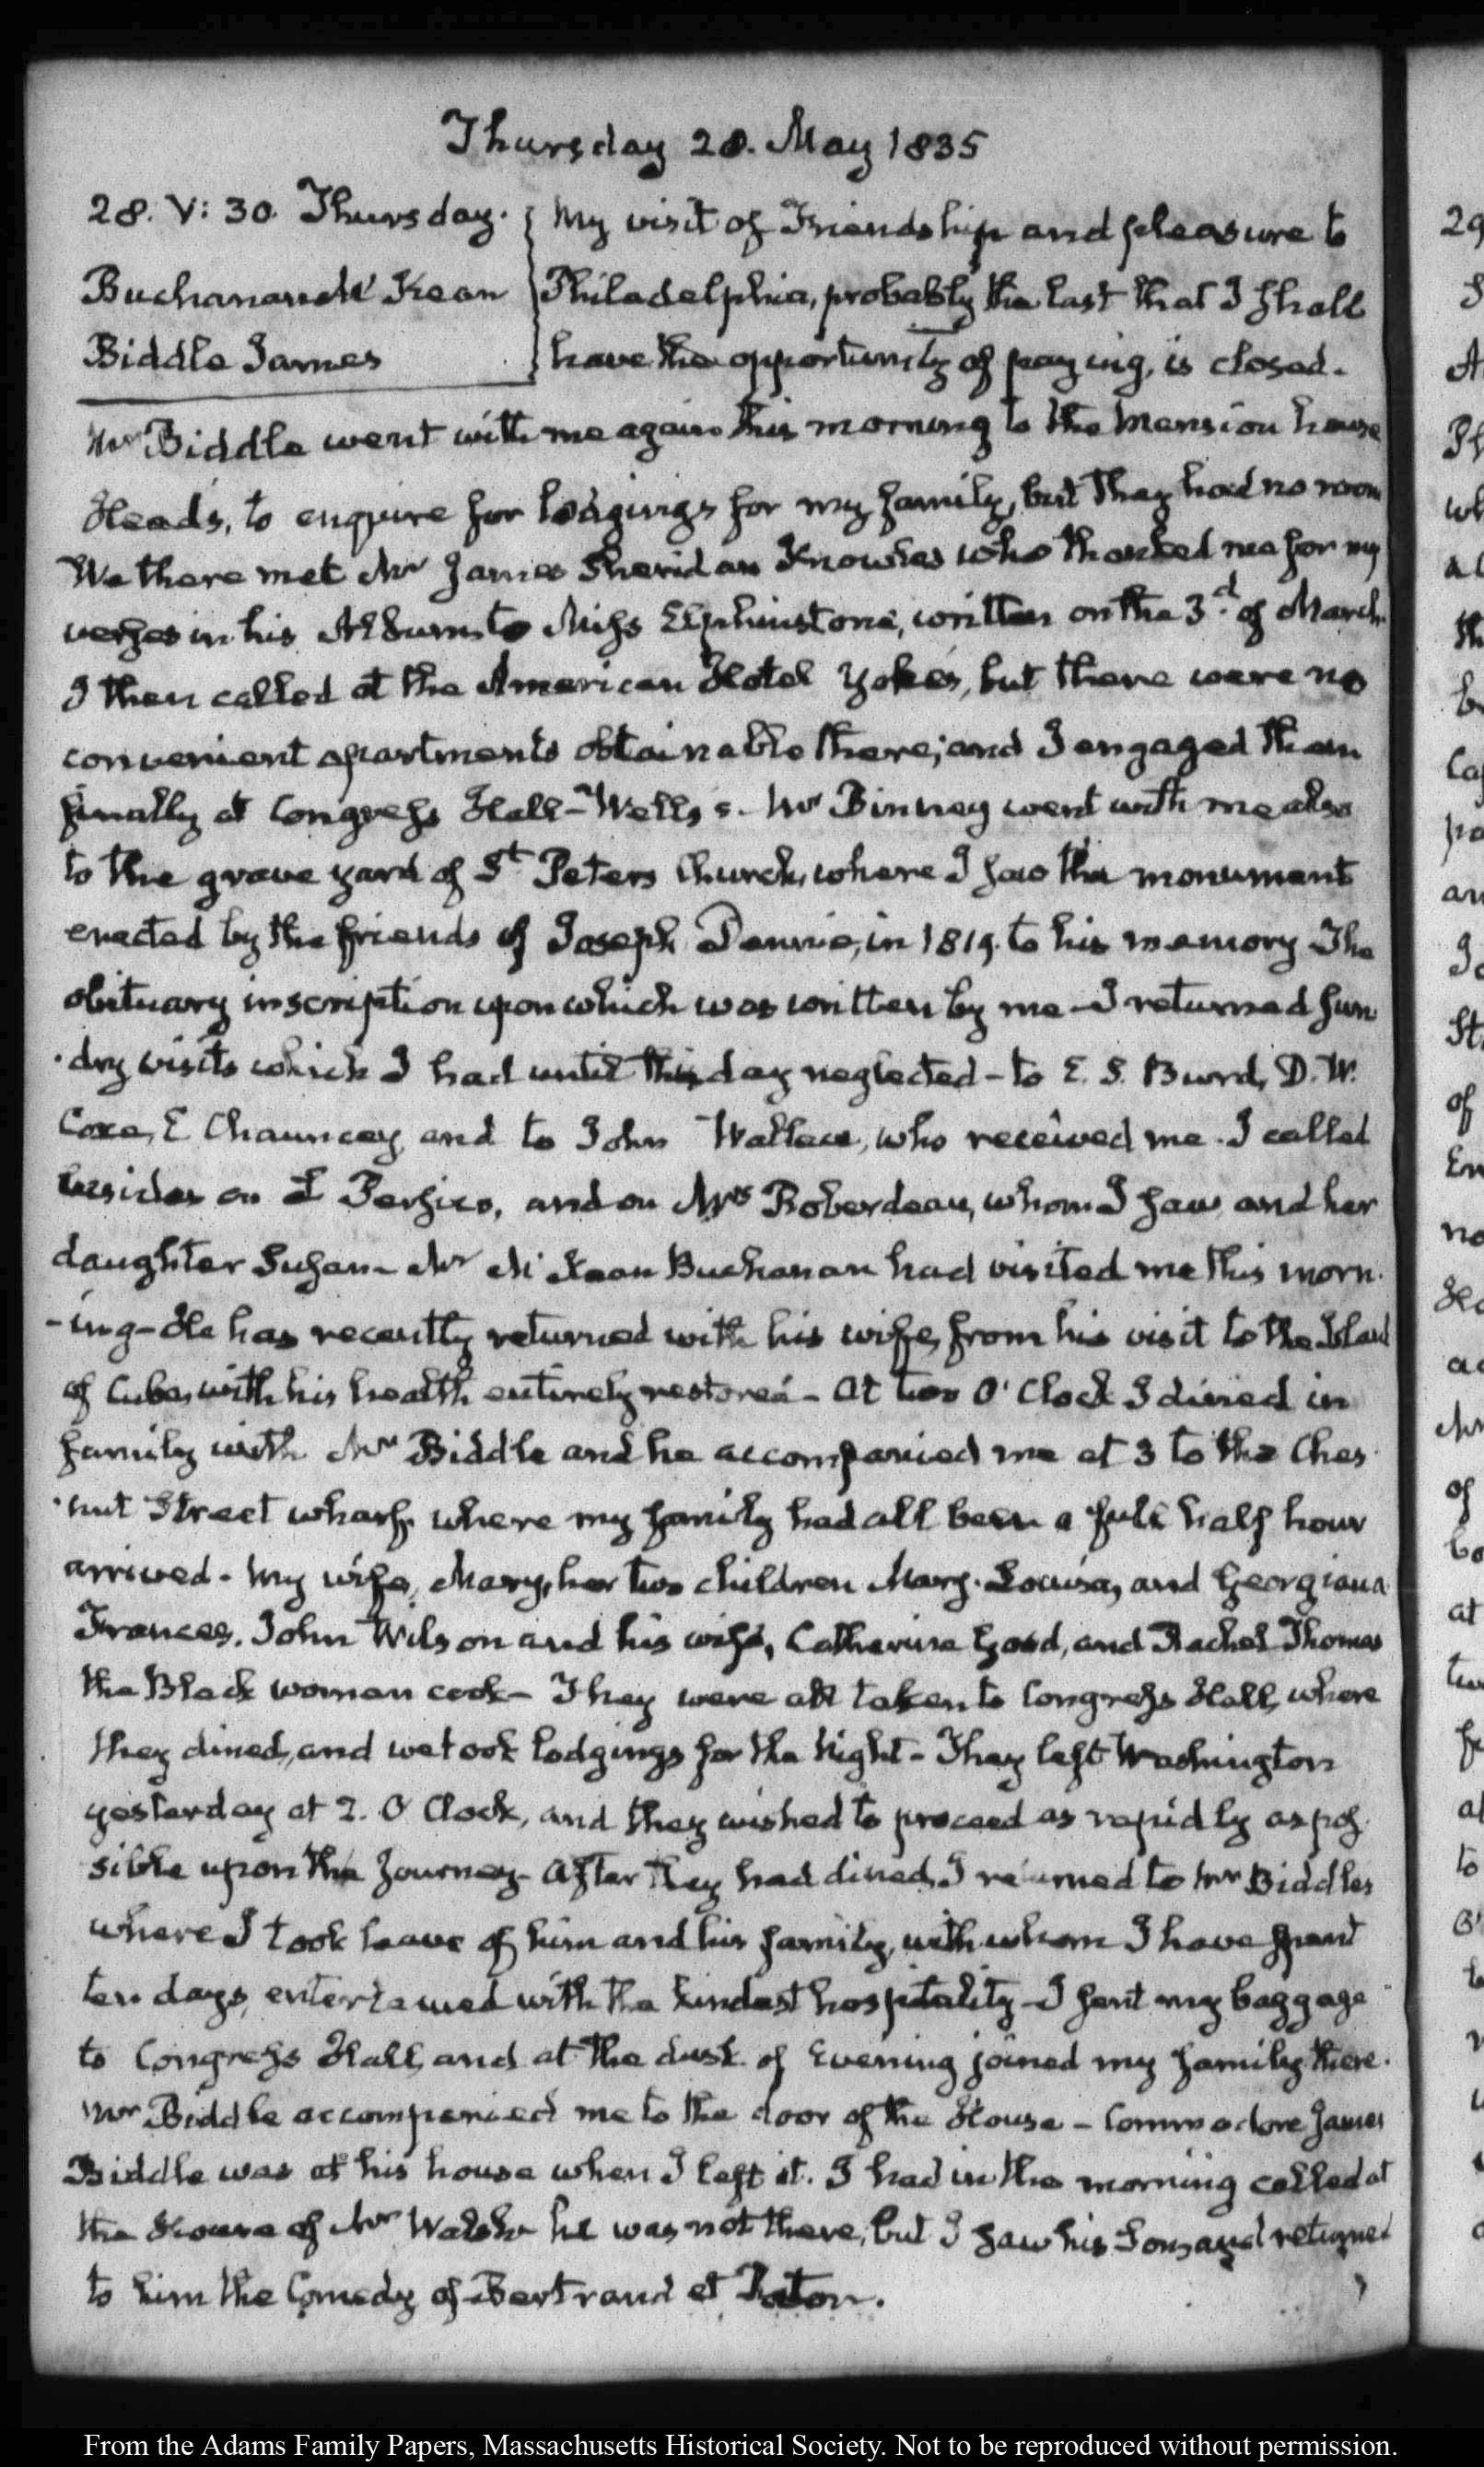 Thursday 28. May 1835
28. V: 30. Thursday.
Buchanan McKean
Biddle James
My visit of Friendship and pleasure to
Philadelphia, probably the last that I shall
have the opportunity of paying, is closed.
Mr Biddle went with me again this morning to the Mansion house
Heads, to enquire for lodgings for my family, but they had no room
We there met Mr James Sheridan Knowles who thanked me for my
verses in his Album to Miss Elphinstone, written on the 3.d of March.
I then called at the American Hotel Yohe's, but there were no
convenient apartments obtainable there; and I engaged them
finally at Congress Hall - Wells's. Mr Binney went with me also
to the grave yard of St Peters Church, where I saw the monument
erected by the friends of Joseph Dennie, in 1819. to his memory The
obituary inscription upon which was written by me - I returned sun
dry visits which I had until this day neglected - to E. S. Burd, D. W.
Coxe, E Chauncey, and to John Wallace, who received me. I called
besides on I Persico, and on Mrs Roberdeau, whom I saw and her
daughter Susan - Mr McKean Buchanan had visited me this morn.
-ing - He has recently returned with his wife, from his visit to the Island
of Cuba, with his health entirely restored - At two O'Clock I dined in
family with Mr Biddle and he accompanied me at 3 to the Ches
nut Street wharf, where my family had all been a full half hour
arrived - My wife, Mary, her two children Mary-Louisa, and Georgiana
Frances, John Wilson and his wife, Catherine Good, and Rachel Thomas
the Black woman cook - They were all taken to Congress Hall, where
they dined, and we took lodgings for the Night - They left Washington
yesterday at 2. O'Clock, and they wished to proceed as rapidly as pos
sible upon the Journey - After they had dined, I returned to Mr Biddles
where I took leave of him and his family, with whom I have spent
ten days, entertained with the kindest hospitality - I sent my baggage
to Congress Hall, and at the dusk of Evening joined my family there.
Mr Biddle accompanied me to the door of the House - Commodore James
Biddle was at his house when I left it. I had in the morning called at
the House of Mr Walsh he was not there, but I saw his Son, and returned
to him the Comedy of Bertrand et Raton.
From the Adams Family Papers, Massachusetts Historical Society. Not to be reproduced without permission.